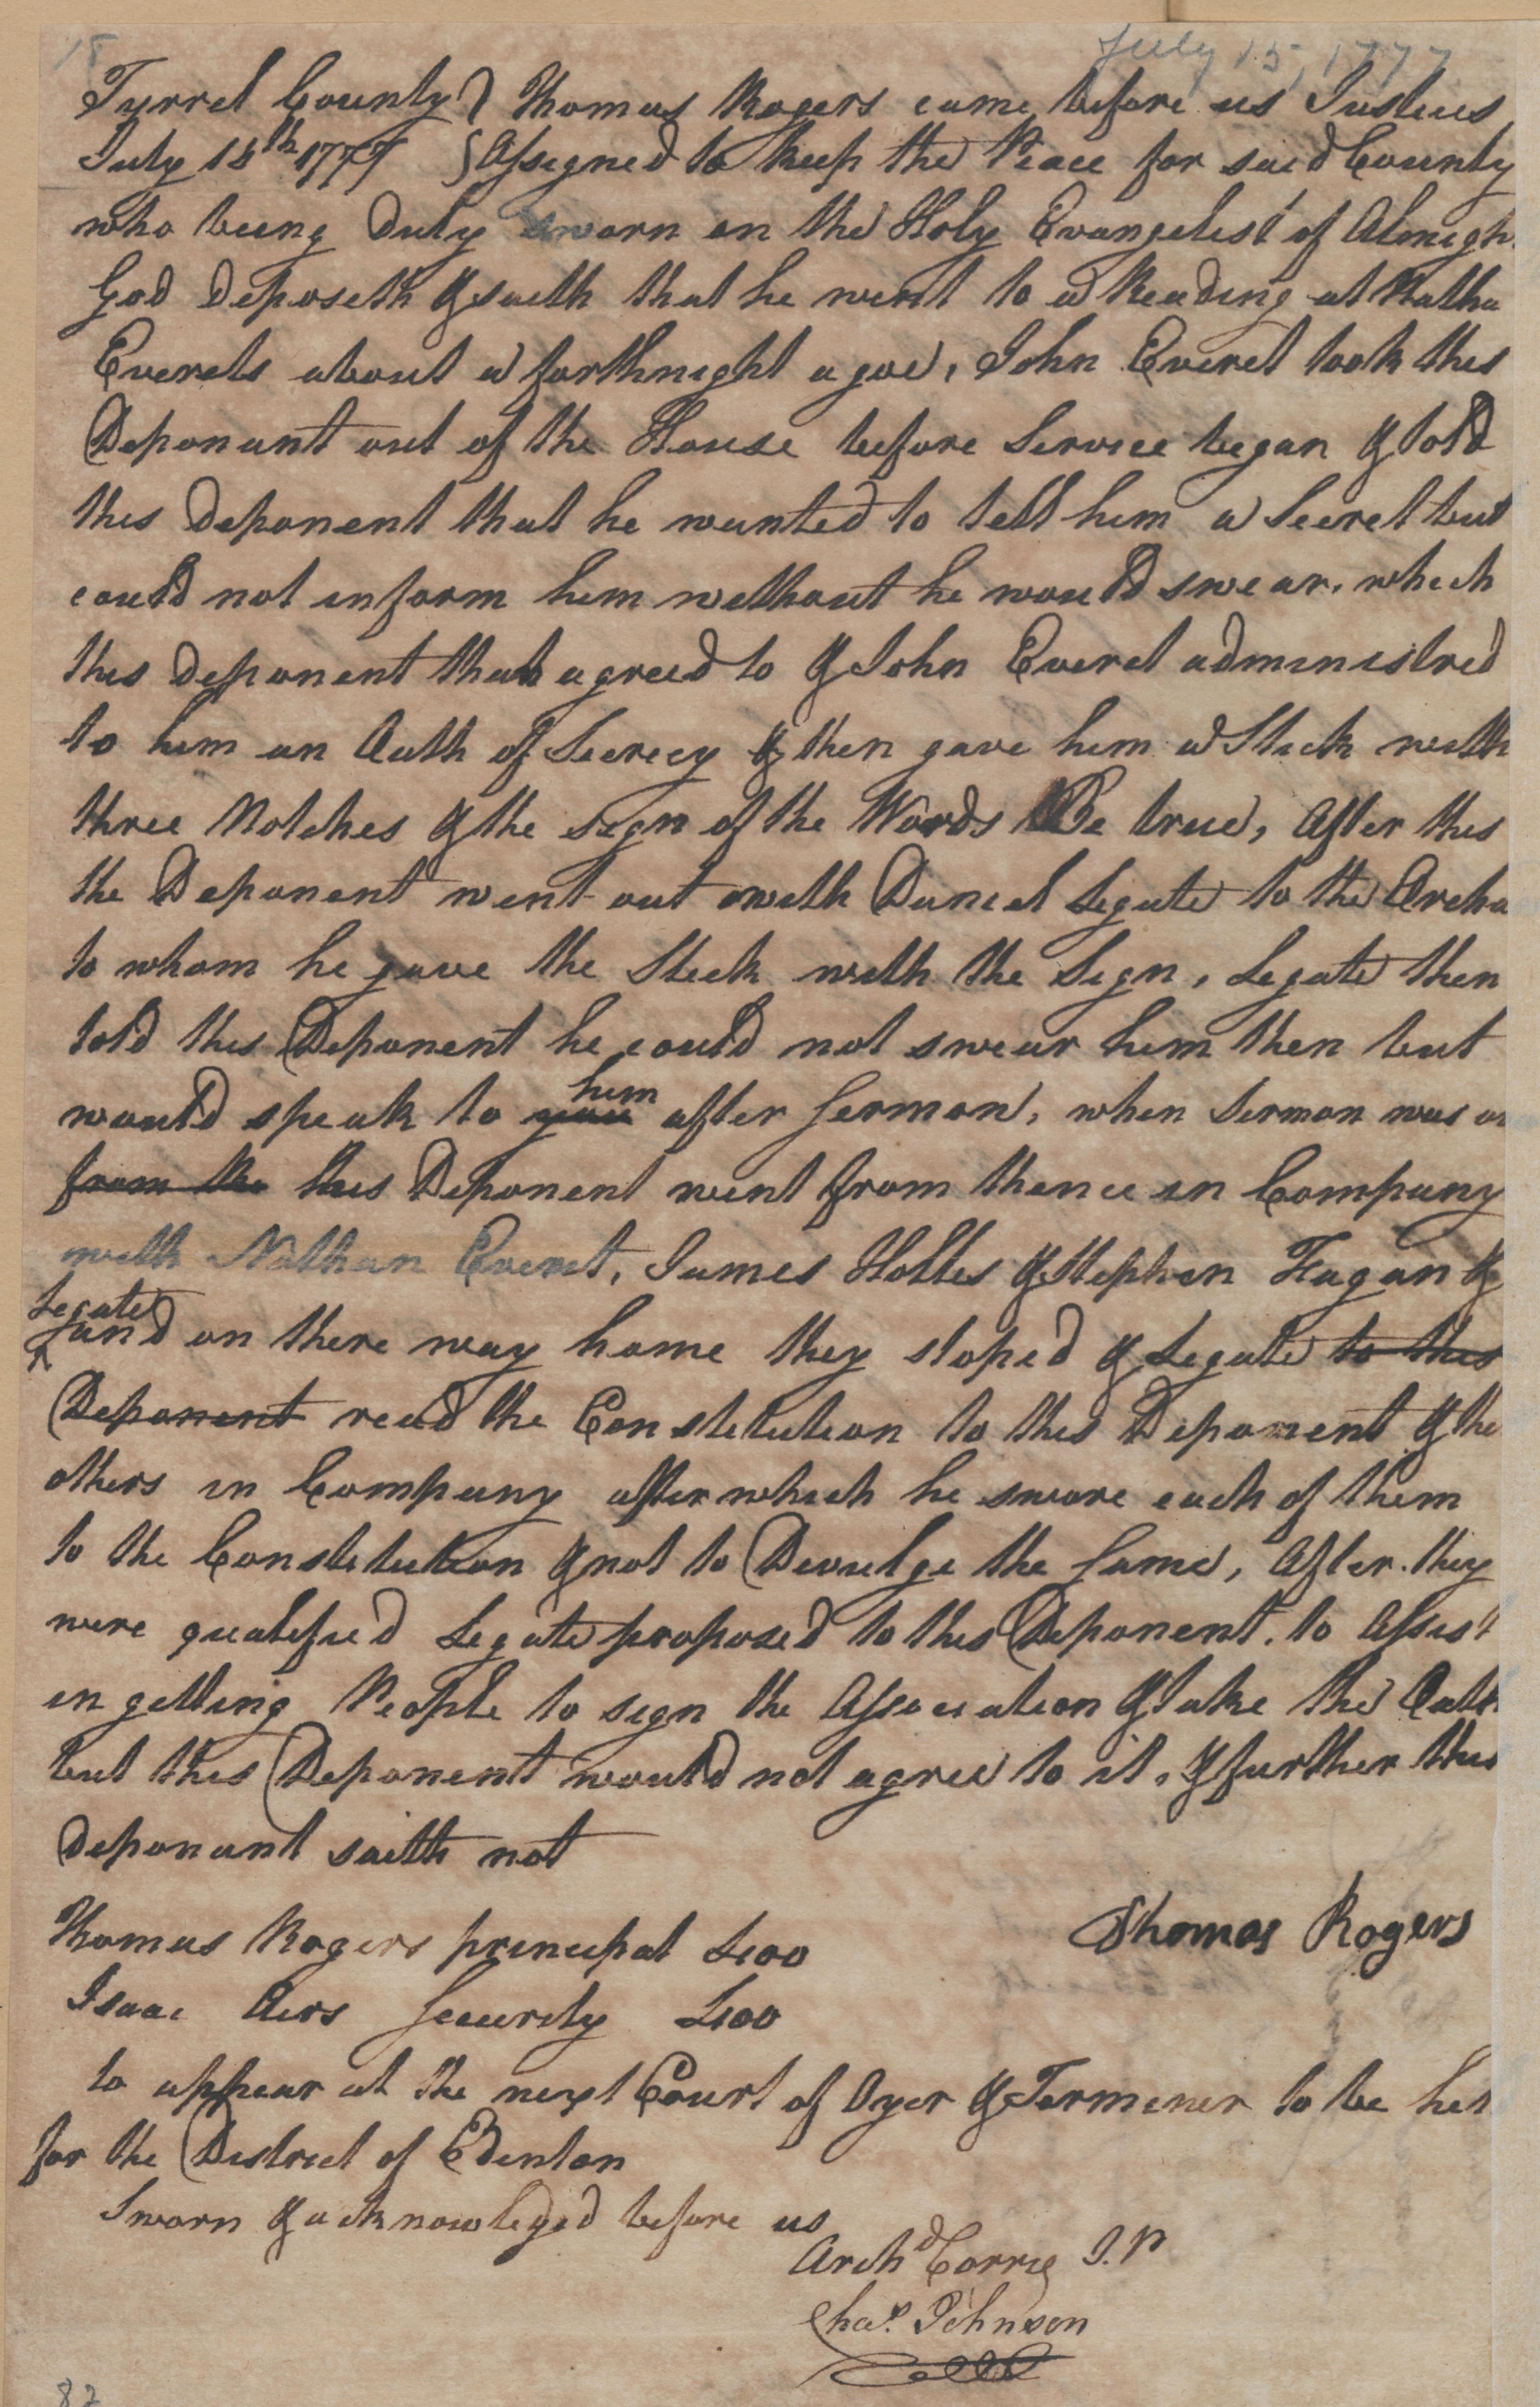 18
July 15, 1777
Tyrrel County } Thomas Rogers came before us Justices
July 15th 1777 } Assigned to keep the Peace for said County
who being Duly sworn on the Holy Evangelist of Almigh
God Deposeth & saith that he went to a Reading at Natha
Everets about a forthnight agoe, John Everet took this
Deponant out of the House before Service began & told
this Deponent that he wanted to tell him a Secret but
could not inform him without he would swear, which
this Deponent that agreed to & John Everet administred
to him an Oath of Secrecy & then gave him a Stick with
three Notches & the sign of the Words Be true, After this
the Deponent went out with Daniel Legate to the Orcha
to whom he gave the Stick with the Sign, Legate then
told this Deponent he could not swear him then but
would speak to you him after Sermon, when Sermon was o
from the this Deponent went from thence in Company
with Nathan Everet, James Holles & Stephen Fagan &
Legate
and on there way home they stoped & Legate to this
Deponent read the Constitution to this Deponent & the
others in Company after which he swore each of them
to the Constitution & not to Devulge the same, After they
were qualified Legate proposed to this Deponent, to Assist
in getting People to sign the Association & take the Oath
but this Deponent would not agree to it, & further this
Deponant saith not
Thomas Rogers
Thomas Rogers principal £100
Isaac Airs Security £100
to appear at the next Court of Oyer & Terminer to be hel
for the District of Edenton
Sworn & acknowledged before us
Archd Corrie J.P
Chas. Johnson
82